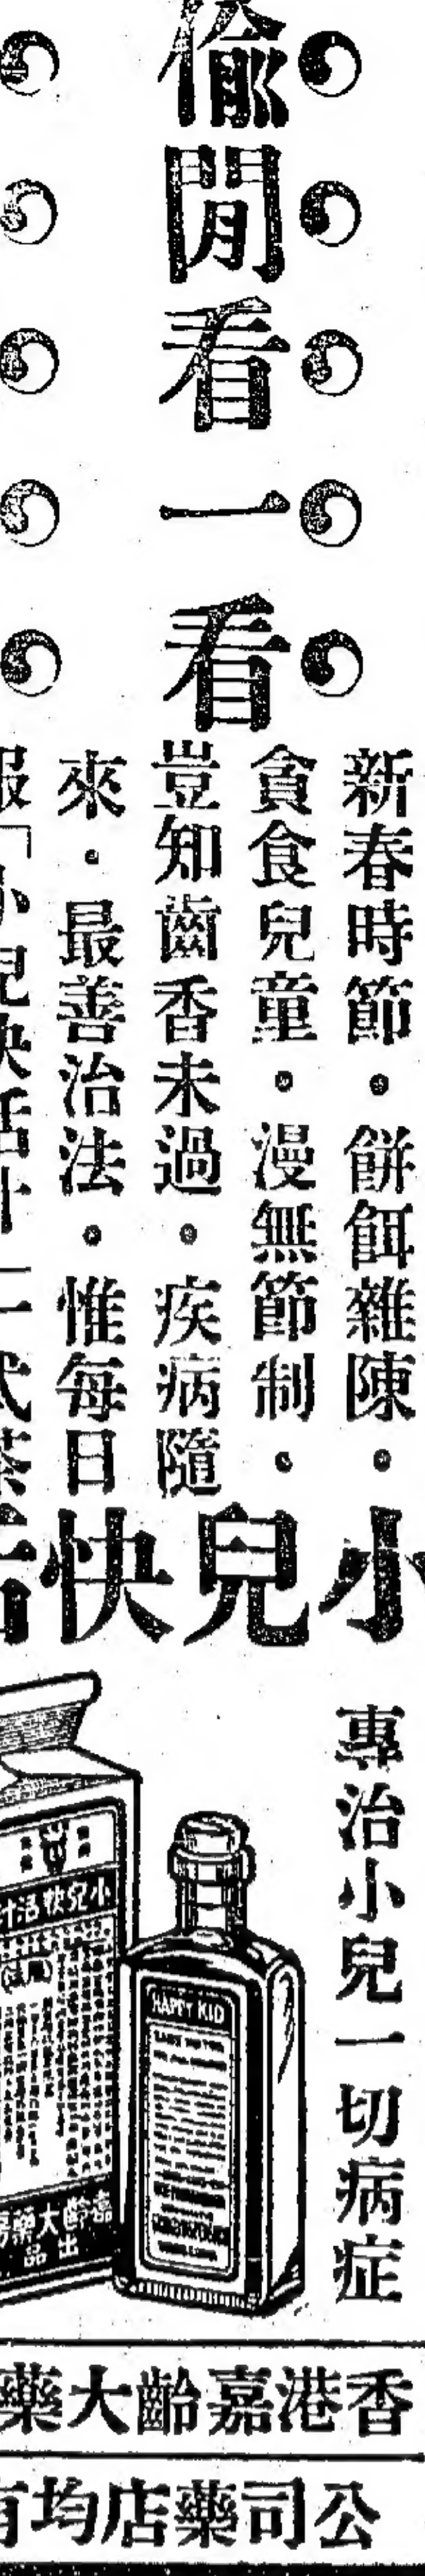 偷閒看一看
新春時節。餅餌雜陳。
貪食兒童。漫無節制。
豈知齒香未過。疾病隨
來。最善治法。惟每日
服「小兒快活汁」一
小兒快活
專治小兒一切病症
HAPPY KID
小兒快活汁
嘉齡大藥房
出品
香港嘉齡大藥
公司藥店均有